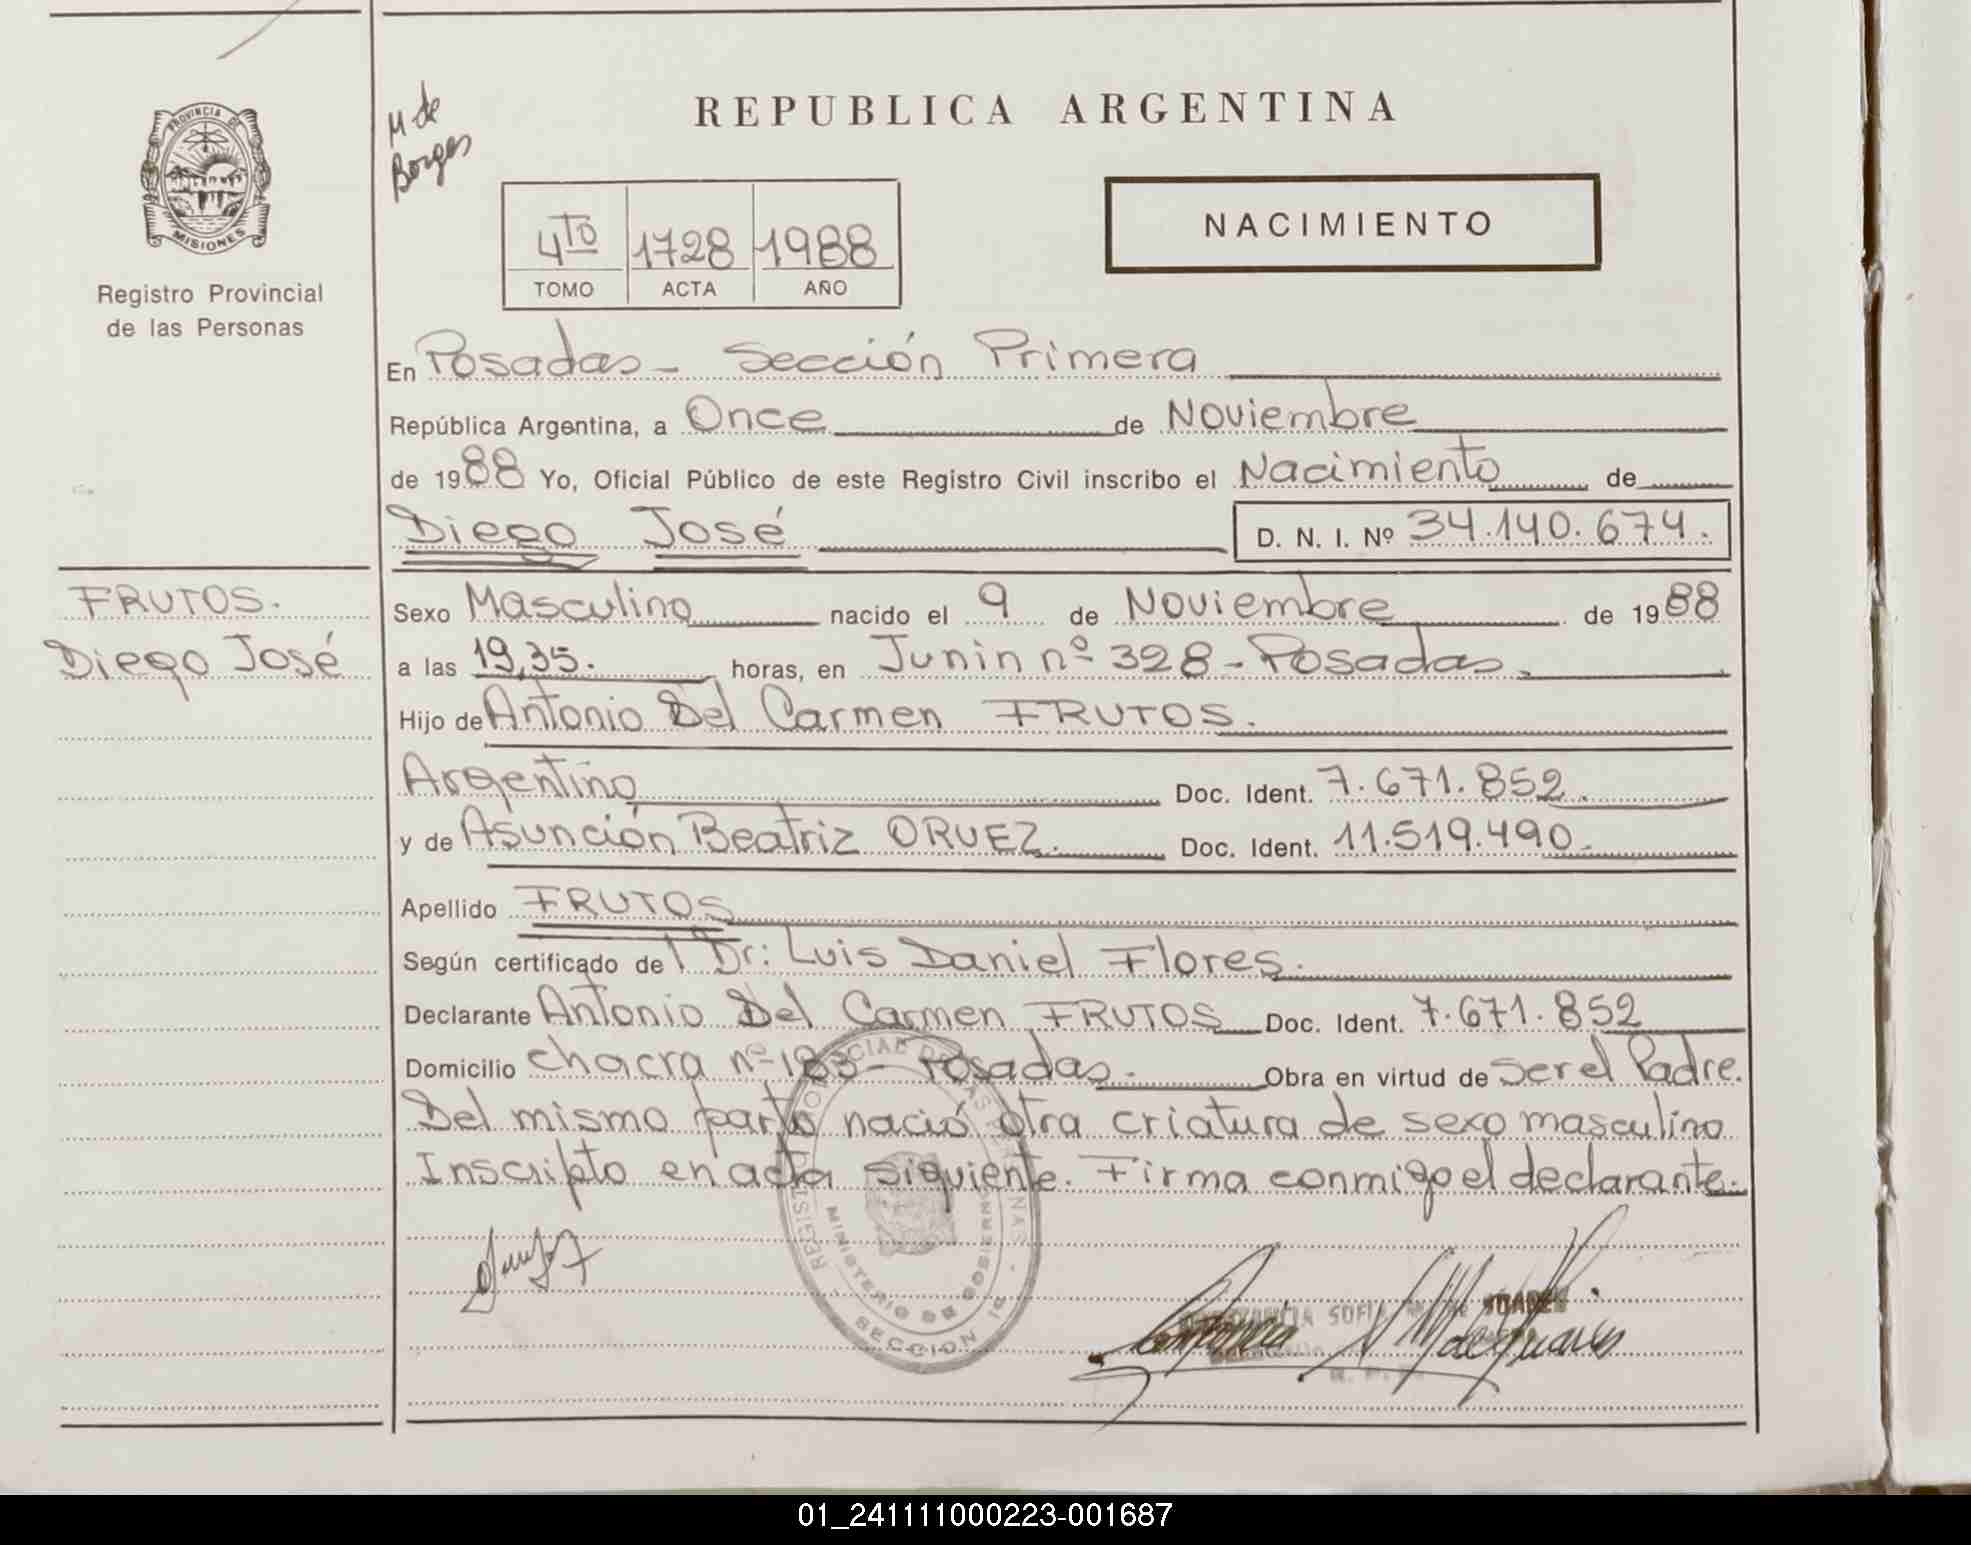 PROVINCIA DE
MISIONES
Registro Provincial
de las Personas
FRUTOS.
Diego José
M de
Borges
REPUBLICA ARGENTINA
4TO 1728 1988
TOMO ACTA AÑO
NACIMIENTO
En Posadas - Sección Primera
República Argentina, a Once de Noviembre
de 1988 Yo, Oficial Público de este Registro Civil inscribo el Nacimiento de
Diego José D. N. I. Nº 34.140.674.
Sexo Masculino nacido el 9 de Noviembre de 1988
a las 19,35. horas, en Junin nº 328 - Posadas.
Hijo de Antonio Del Carmen FRUTOS.
Argentino Doc. Ident. 7.671.852.
y de Asunción Beatriz ORUEZ. Doc. Ident. 11.519.490.
Apellido FRUTOS
Según certificado del Dr: Luis Daniel Flores.
Declarante Antonio Del Carmen FRUTOS Doc. Ident. 7.671.852
Domicilio chacra nº 183 - Posadas. Obra en virtud de Ser el Padre.
Del mismo parto nació otra criatura de sexo masculino
Inscripto en acta siguiente. Firma conmigo el declarante.
MINISTERIO DE GOBIERNO
SECCION 1ª
SOFIA
01_241111000223-001687